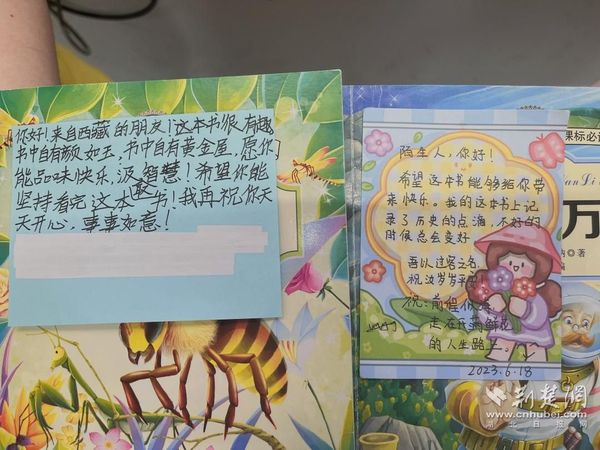 你好！来自西藏的朋友！这本书很有趣
书中自有颜如玉，书中自有黄金屋，愿你
能品味快乐，汲智慧！希望你能
坚持看完这本书！我再祝你天
天开心，事事如意！
陌生人，你好！
希望这本书能够给你带
来快乐。我的这本书上记
录了历史的点滴，不好的
时候总会变好
吾以过客之名，
祝汝岁岁平
祝：前程似
走在开满鲜花
的人生路上。
2023.6.18
课标必
万
著
荆楚网
www.cnhubei.com
湖北日报网